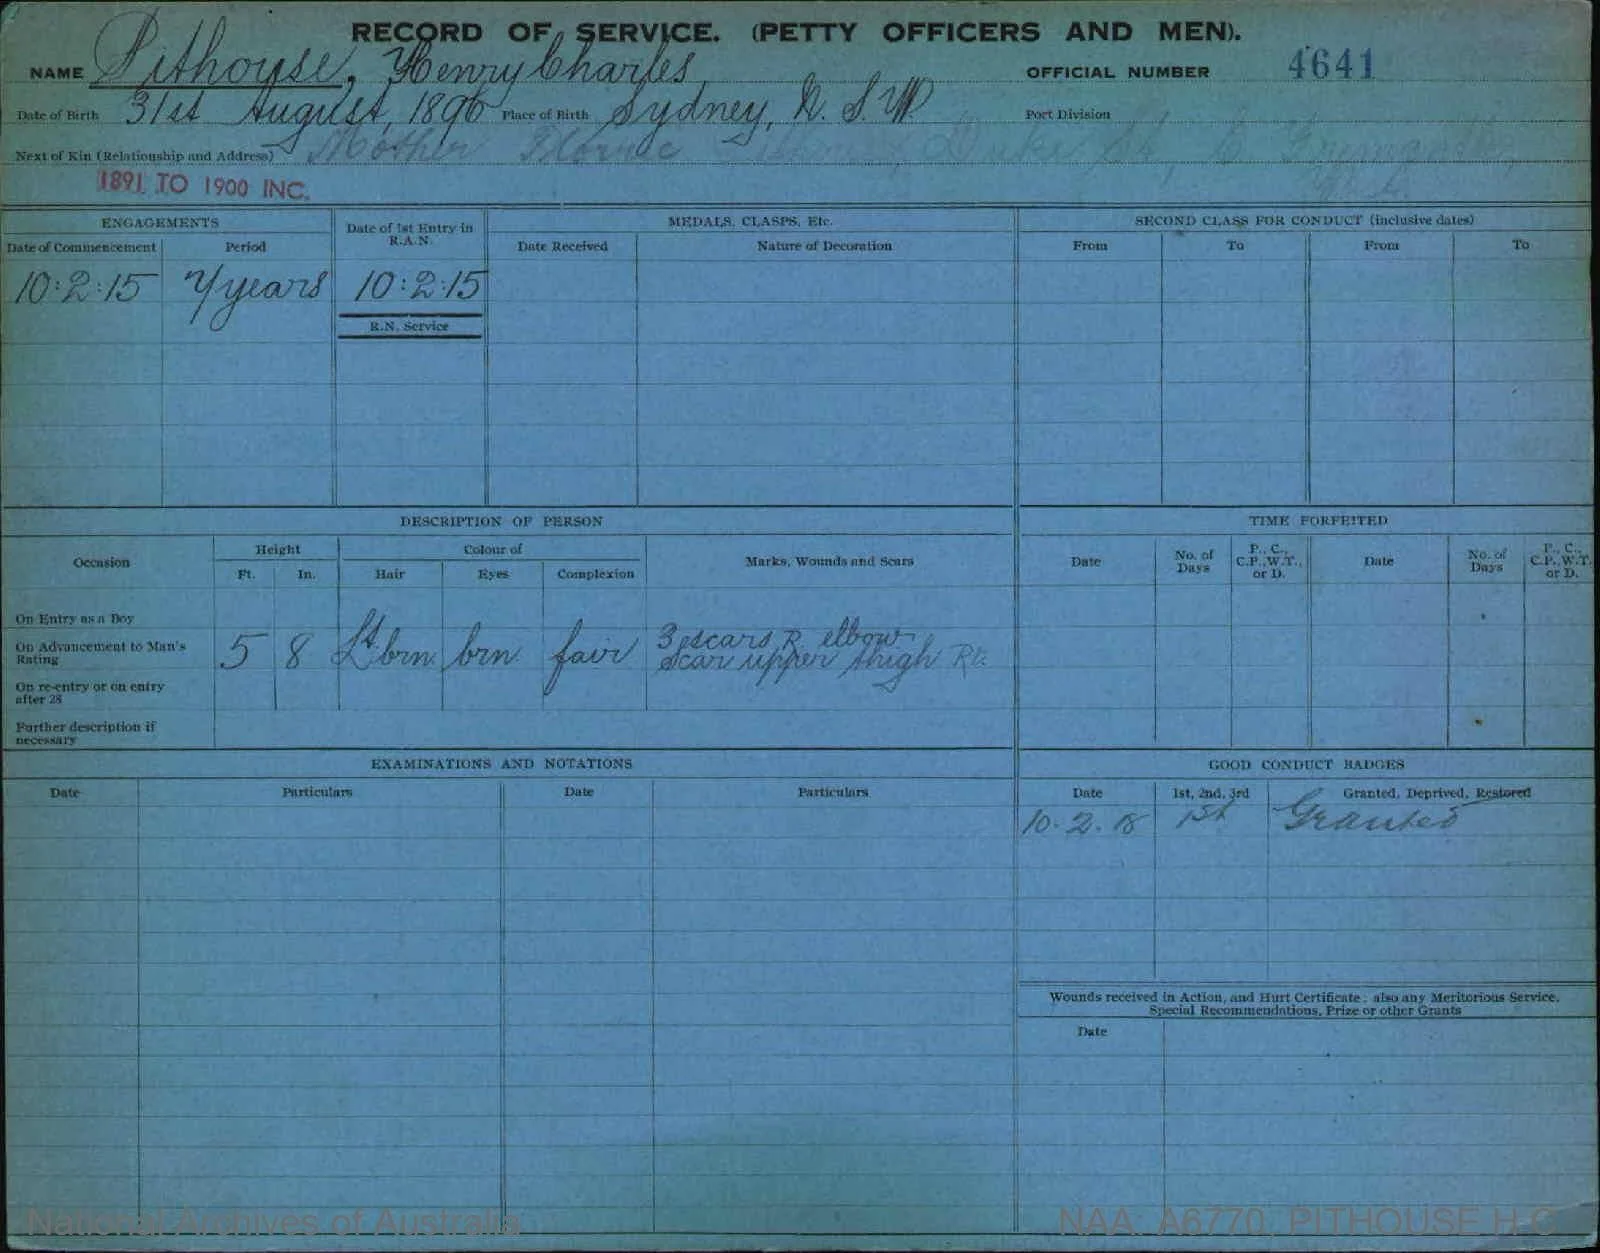 RECORD OF SERVICE. (PETTY OFFICERS AND MEN).
NAME Pithouse, Henry Charles OFFICIAL NUMBER 4641
Date of Birth 31st August, 1896 Place of Birth Sydney, N.S.W. Port Division
Next of Kin (Relationship and Address) Mother
1891 TO 1900 INC.
ENGAGEMENTS Date of 1st Entry in R.A.N. MEDALS, CLASPS, Etc. SECOND CLASS FOR CONDUCT (inclusive dates)
Date of Commencement Period Date Received Nature of Decoration From To From To
10:2:15 7 years 10:2:15
R.N. Service
DESCRIPTION OF PERSON TIME FORFEITED
Occasion Height Colour of Marks, Wounds and Scars Date No. of Days P., C., C.P., W.T., or D. Date No. of Days P., C., C.P., W.T. or D.
Ft. In. Hair Eyes Complexion
On Entry as a Boy
On Advancement to Man's Rating 5 8 Lt brn. brn fair 3 scars R. elbow scar upper thigh Rt.
On re-entry or on entry after 28
Further description if necessary
EXAMINATIONS AND NOTATIONS GOOD CONDUCT BADGES
Date Particulars Date Particulars Date 1st, 2nd, 3rd Granted, Deprived, Restored
10.2.18 1st Granted
Wounds received in Action, and Hurt Certificate; also any Meritorious Service,
Special Recommendations, Prize or other Grants
Date
National Archives of Australia NAA: A6770, PITHOUSE H C